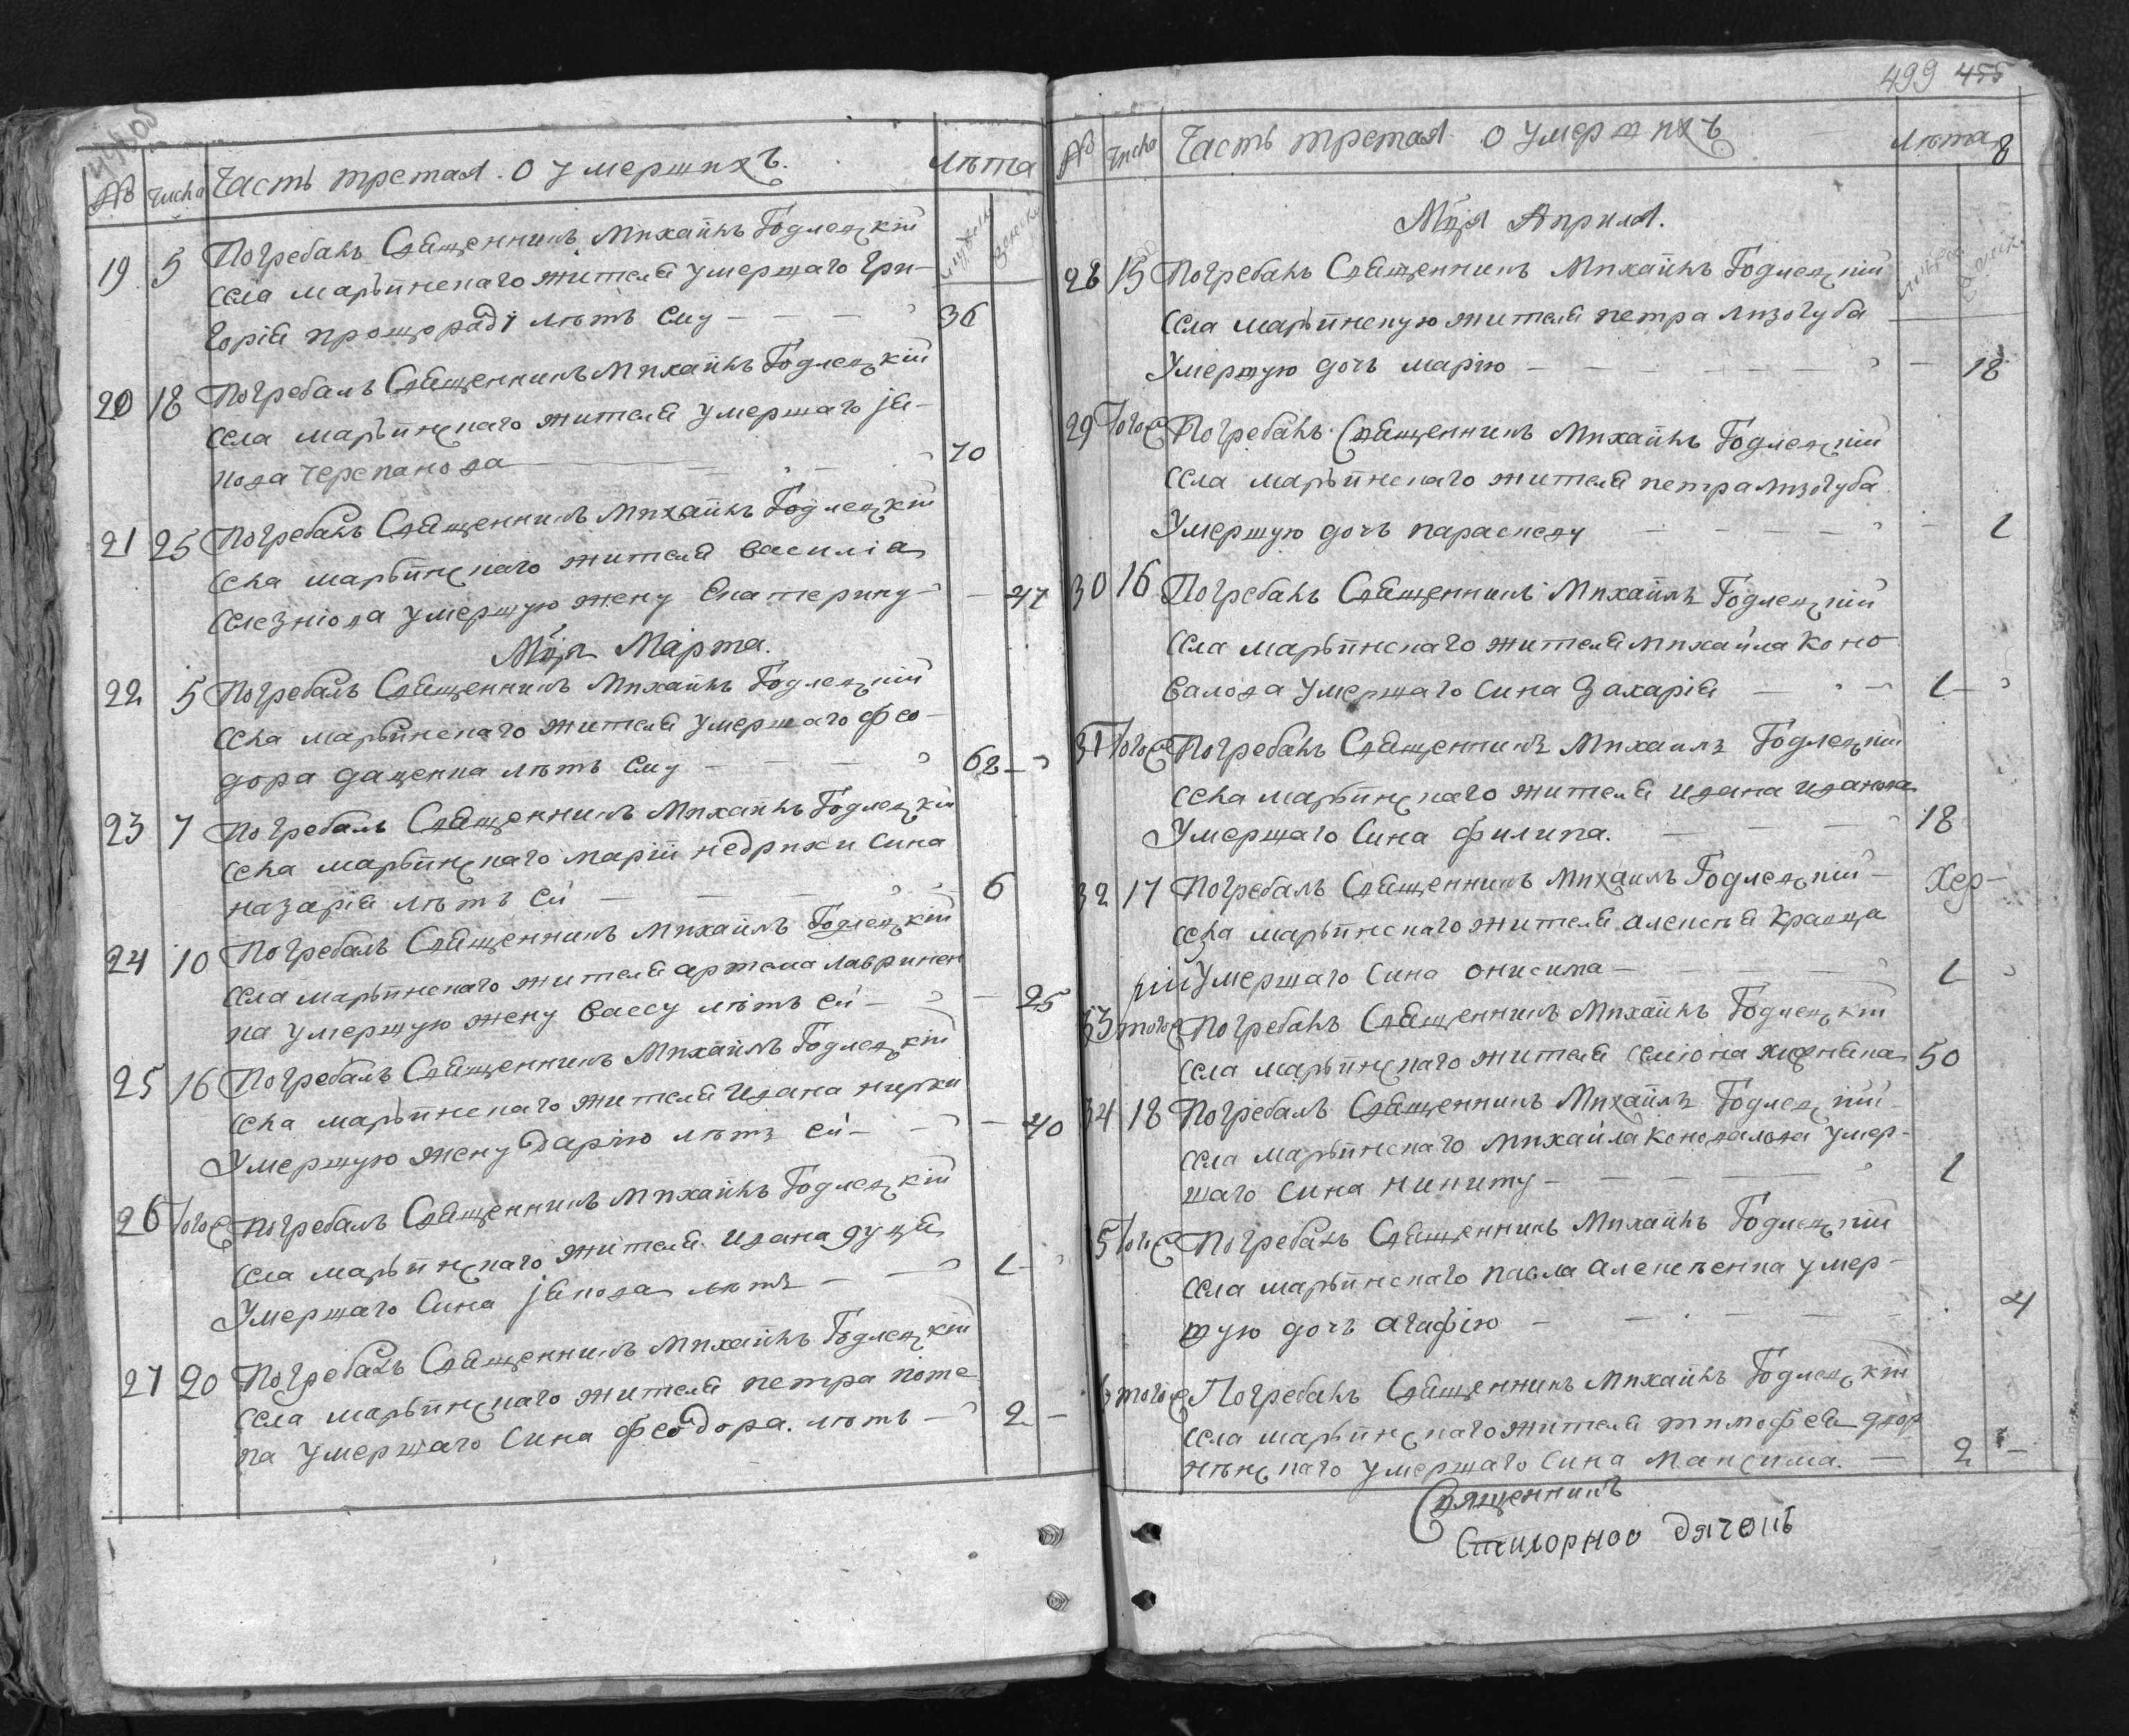 № Числа Часть третая. О умершихъ. Лѣта
мужеск женска
19 5 Погребалъ Священникъ Михайлъ Годлевскій
села марьинскаго жителя умершаго гри-
горія лѣтъ ему 36
20 18 Погребалъ Священникъ Михайлъ Годлевскій
села марьинскаго жителя умершаго Iя-
кова черепанова 70
21 25 Погребалъ Священникъ Михайлъ Годлевскій
села марьинскаго жителя василія
умершую жену Екатерину 47
Мця Марта.
22 5 Погребалъ Священникъ Михайлъ Годлевскій
села марьинскаго жителя умершаго фео-
дора даценка лѣтъ ему 68
23 7 Погребалъ Священникъ Михайлъ Годлевскій
села марьинскаго марій недрихи сина
назарія лѣтъ ей 6
24 10 Погребалъ Священникъ Михайлъ Годлевскій
села марьинскаго жителя артема лавринен
ка умершую жену вассу лѣтъ ей 25
25 16 Погребалъ Священникъ Михайлъ Годлевскій
села марьинскаго жителя Ивана нирки
умершую жену Дарію лѣтъ ей 40
26 Того Погребалъ Священникъ Михайлъ Годлевскій
села марьинскаго жителя Ивана
умершаго сина Iякова лѣтъ 1
27 20 Погребалъ Священникъ Михайлъ Годлевскій
села марьинскаго жителя петра
ка умершаго сина феодора. лѣтъ 2
499 455
№ Числа Часть третая О умершихъ Лѣта 8
Мця Априля.
28 15 Погребалъ Священникъ Михайлъ Годлевскій
села марьинскую жителя петра лизогуба
умершую дочъ марію 18
29 Того Погребалъ Священникъ Михайлъ Годлевскій
села марьинскаго жителя петра лизогуба
умершую дочъ параскеву 1
30 16 Погребалъ Священникъ Михайлъ Годлевскій
села марьинскаго жителя михайла коно
валова умершаго сина Захарія 1
31 Того Погребалъ Священникъ Михаилъ Годлевскій
села марьинскаго жителя ивана иванова
умершаго сина филипа. 18
32 17 Погребалъ Священникъ Михаилъ Годлевскій
села марьинскаго жителя алексѣя кравца
умершаго сина онисима 1
33 того Погребалъ Священникъ Михайлъ Годлевскій
села марьинскаго жителя 50
34 18 Погребалъ Священникъ Михайлъ Годлевскій
села марьинскаго михайла коновалова умер-
шаго сина никиту 1
5 Того Погребалъ Священникъ Михайлъ Годлевскій
села марьинскаго павла алексѣенка умер-
шую дочъ агафію 4
того Погребалъ Священникъ Михайлъ Годлевскій
села марьинскаго жителя тимофея двор
умершаго сина максима. 2
Священникъ
Стихорной Дячокъ